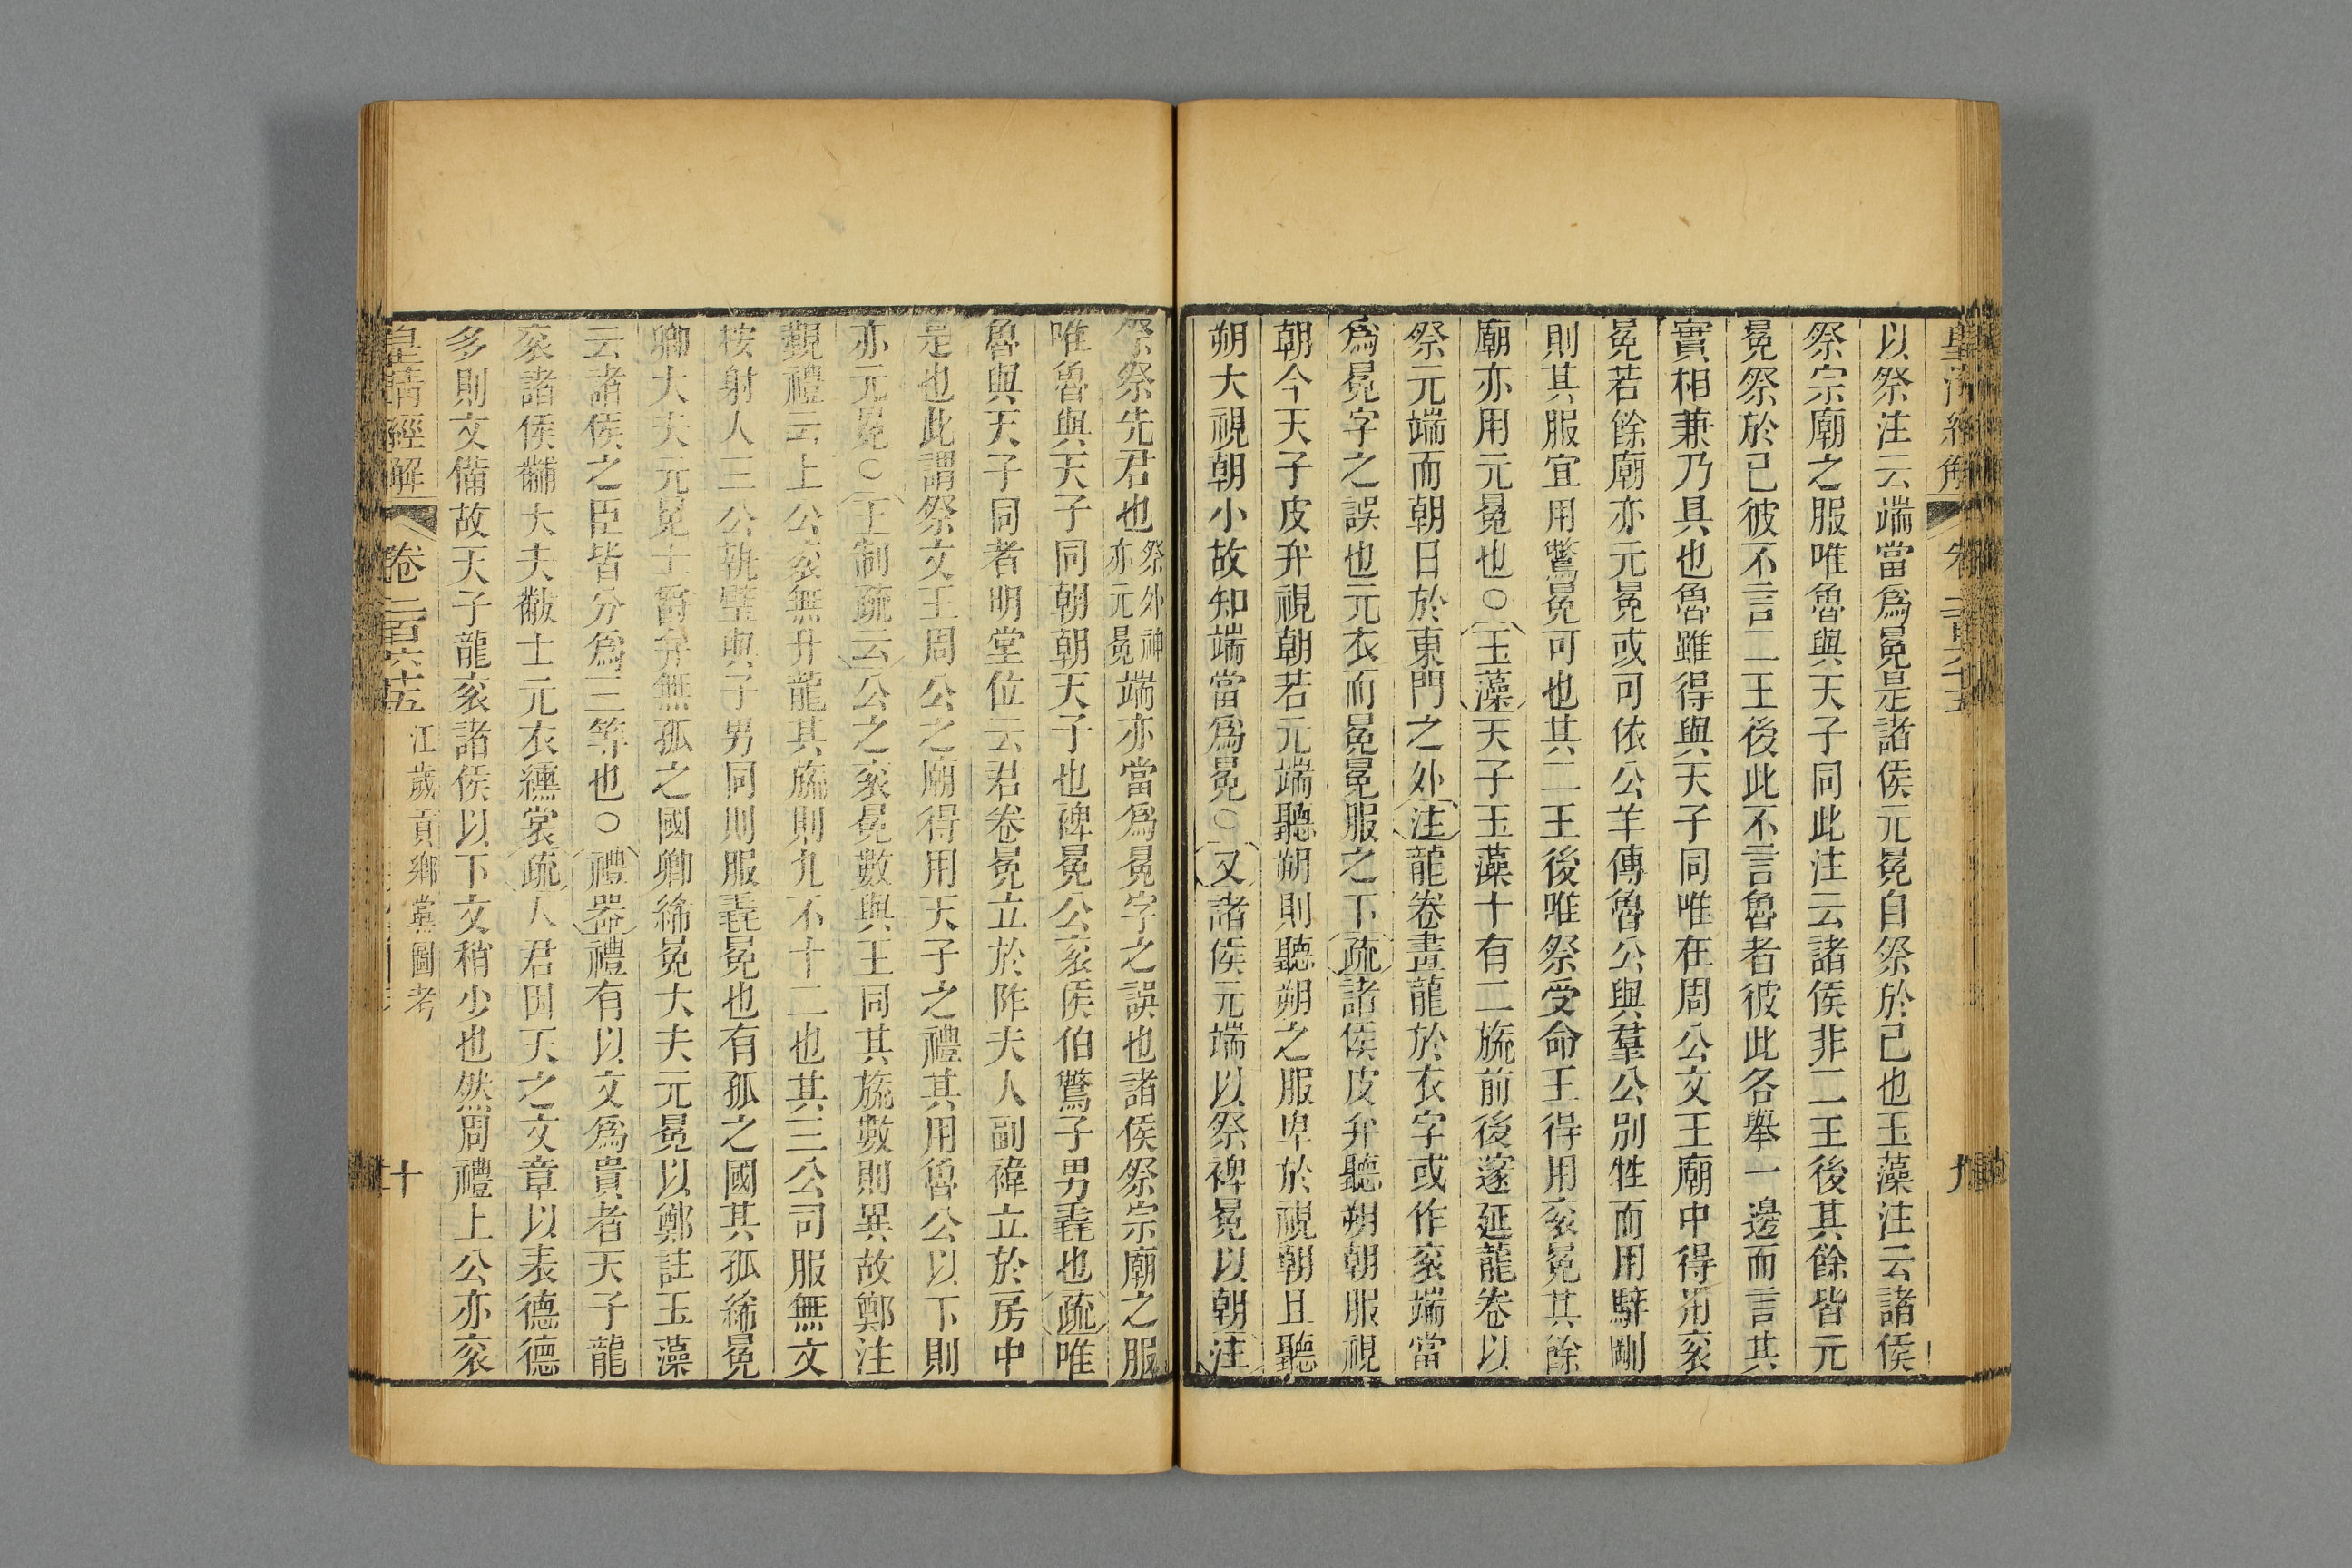 皇清經解 卷二百六十五 九
以祭注云端當爲冕是諸侯元冕自祭於己也玉藻注云諸侯
祭宗廟之服唯魯與天子同此注云諸侯非二王後其餘皆元
冕祭於已彼不言二王後此不言魯者彼此各舉一邊而言其
實相兼乃具也魯雖得與天子同唯在周公文王廟中得用袞
冕若餘廟亦元冕或可依公羊傳魯公與羣公別牲而用騂剛
則其服宜用鷩冕可也其二王後唯祭受命王得用袞冕其餘
廟亦用元冕也○玉藻天子玉藻十有二旒前後邃延龍卷以
祭元端而朝日於東門之外注龍卷畫龍於衣字或作袞端當
爲冕字之誤也元衣而冕冕服之下疏諸侯皮弁聽朔朝服視
朝今天子皮弁視朝若元端聽朔則聽朔之服卑於視朝且聽
朔大視朝小故知端當爲冕○又諸侯元端以祭裨冕以朝注
祭祭先君也祭外神亦元冕端亦當爲冕字之誤也諸侯祭宗廟之服
唯魯與天子同朝朝天子也裨冕公袞侯伯鷩子男毳也疏唯
魯與天子同者明堂位云君卷冕立於阼夫人副褘立於房中
是也此謂祭文王周公之廟得用天子之禮其用魯公以下則
亦元冕○王制疏云公之袞冕數與王同其旒數則異故鄭注
覲禮云上公袞無升龍其旒則九不十二也其三公司服無文
按射人三公執璧與子男同則服毳冕也有孤之國其孤絺冕
卿大夫元冕士爵弁無孤之國卿絺冕大夫元冕以鄭註玉藻
云諸侯之臣皆分爲三等也○禮器禮有以文爲貴者天子龍
袞諸侯黼大夫黻士元衣纁裳疏人君因天之文章以表德德
多則文備故天子龍袞諸侯以下文稍少也然周禮上公亦袞
皇清經解 卷二百六十五 江歲貢鄉黨圖考 十